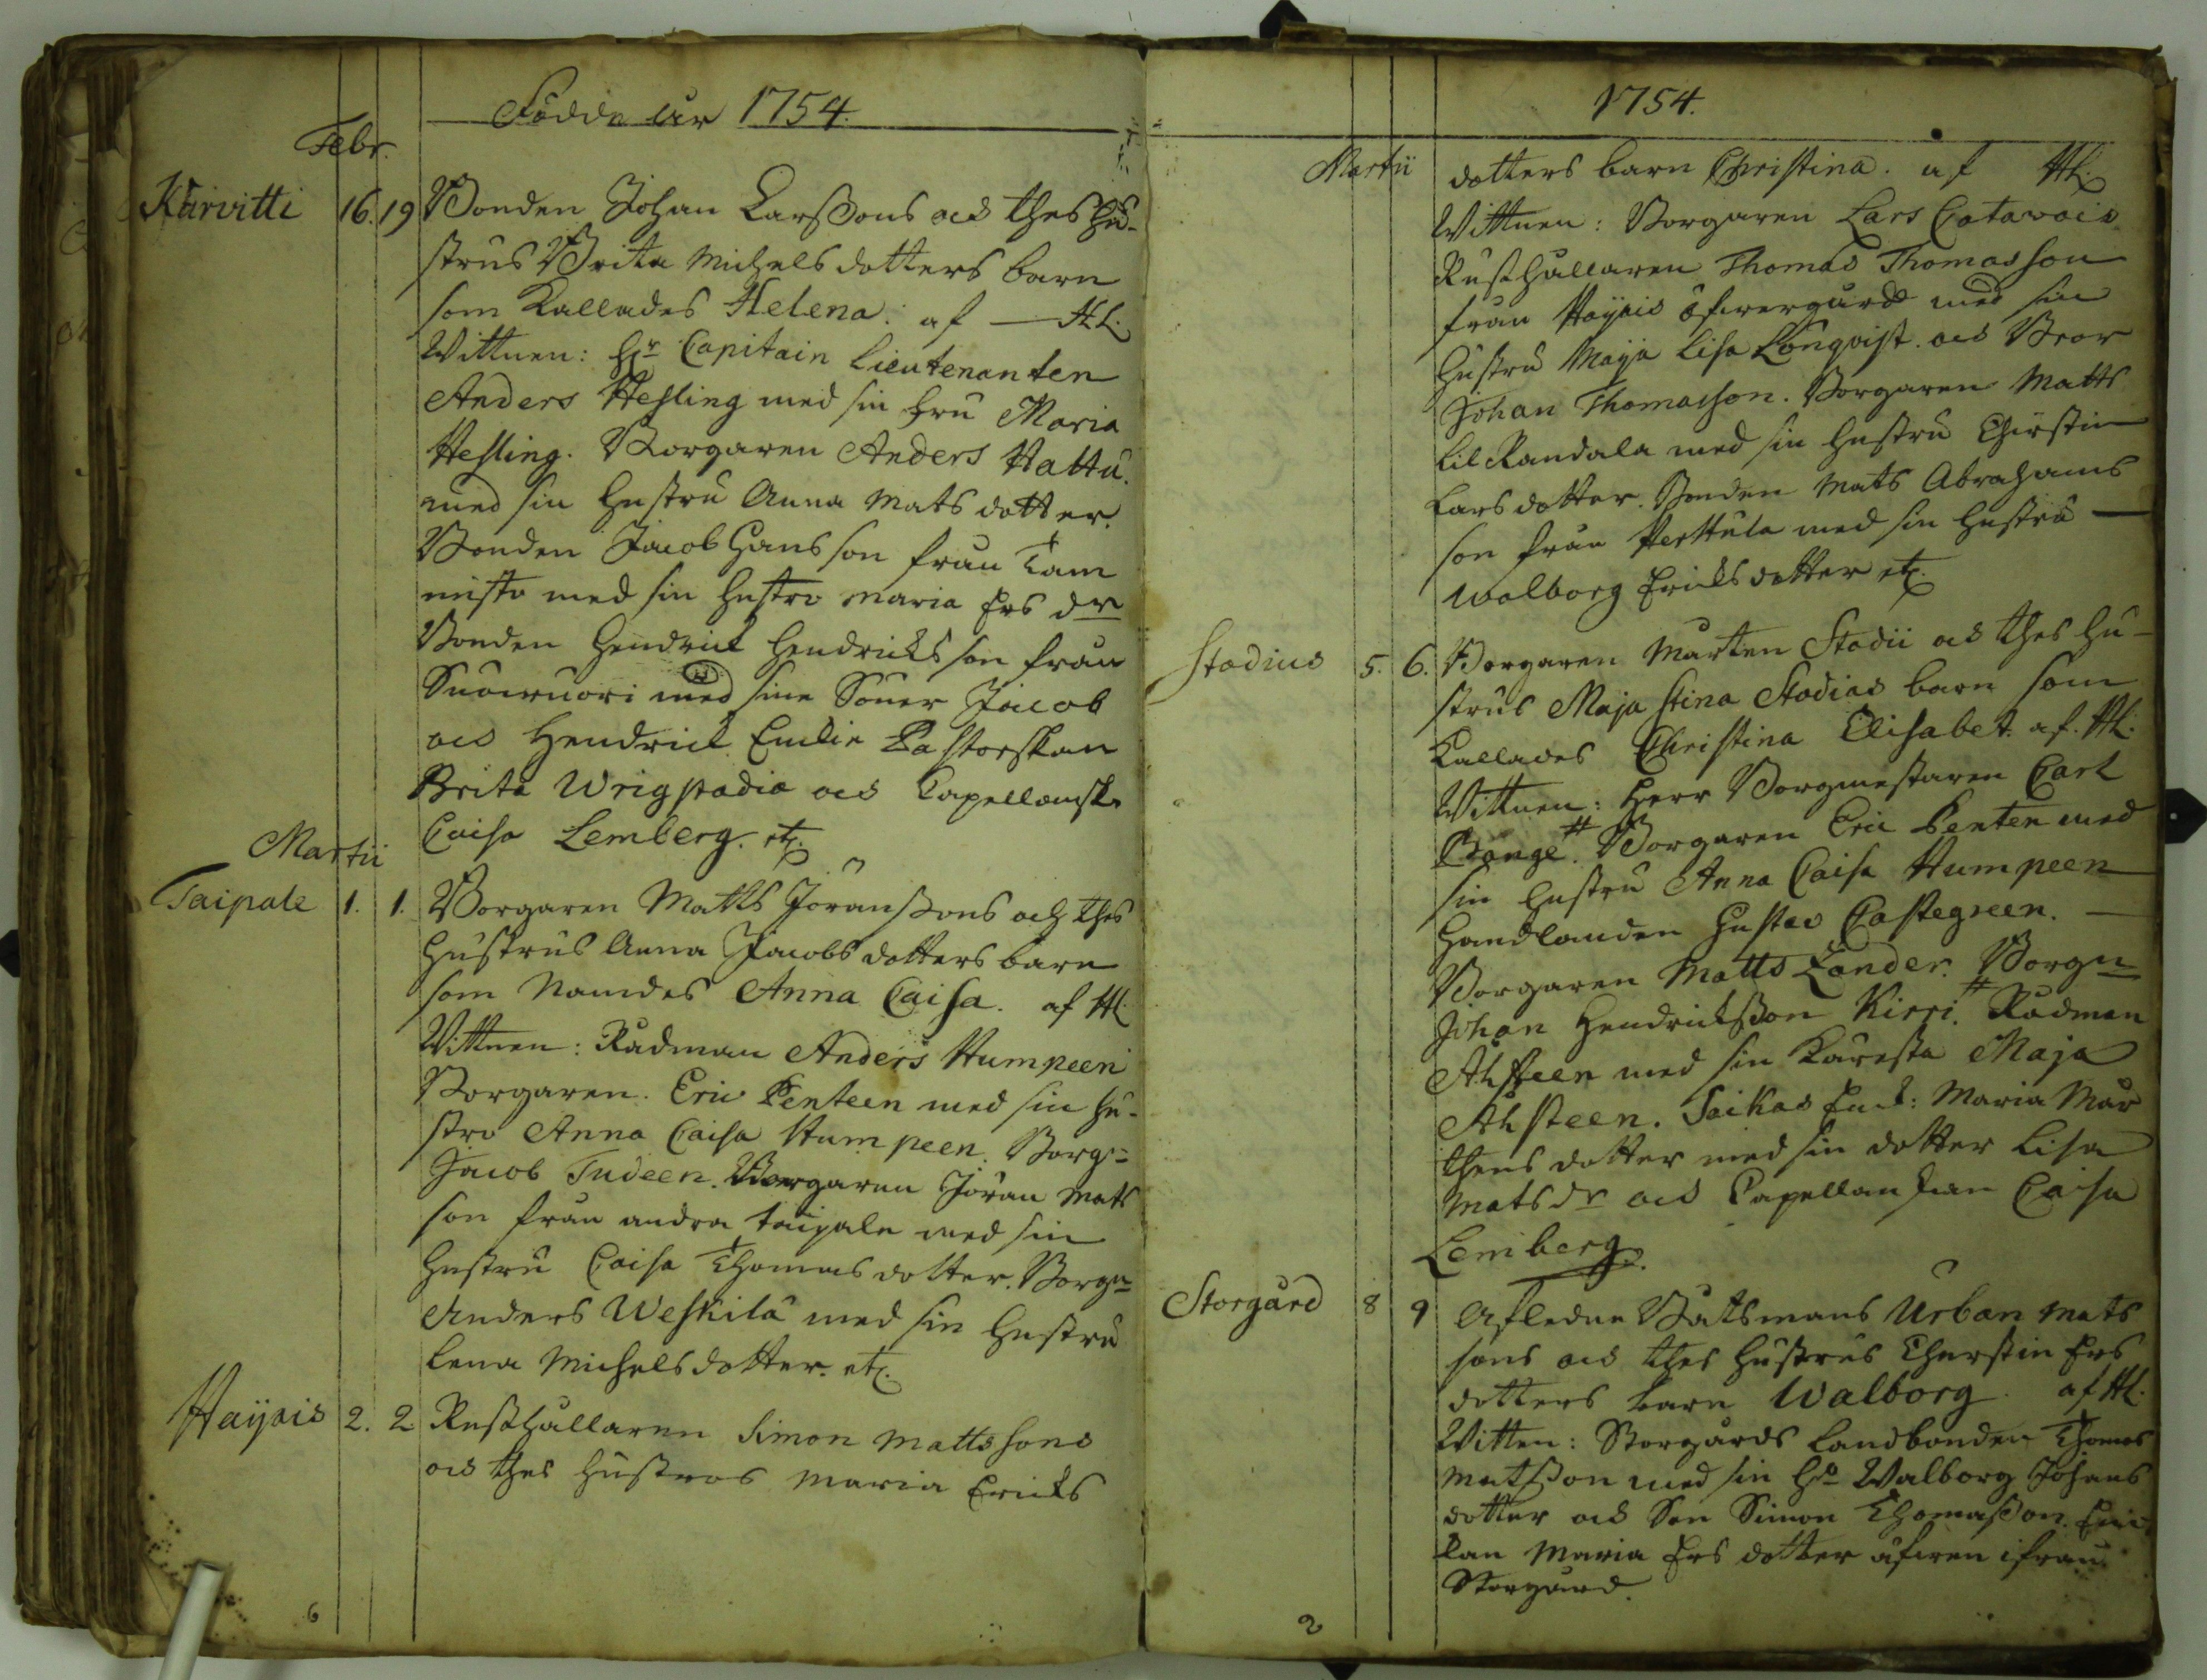 Födde år 1754.
Febr.
Karvitti 16. 19 Bonden Johan Larßons och thes hu-
strus Brita Michels dotters barn
som kallades Helena. af — HL.
Wittnen: Hr Capitain Lieutenanten
Anders Hesling med sin fru Maria
Hesling. Borgaren Anders Hattu.
med sin hustru Anna Mats dotter.
Bonden Jacob Hansson från Tam
misto med sin hustro Maria Ers dr
Bonden Hendrick Hendricksson från
med sine Söner Jacob
och Hendrick Enkie Pastorskan
Brita Wrigstadia och Capellansk.
Caisa Lemberg. etc.
Martii
Taipale 1. 1. Borgaren Matts Jöranßons och thes
hustrus Anna Jacobs dotters barn
som Namdes Anna Caisa. af HL
Wittnen: Rådman Anders Humpeen
Borgaren. Eric Penteen med sin hu-
stro Anna Caisa Humpeen. Borg:
Jacob Tudeen. Borgaren Jöran Mats
son från andra taipale med sin
hustru Caisa Thomas dotter. Borgn
Anders Weskilä med sin hustru
Lena Michels dotter. etc.
Haijais 2. 2. Rusthållaren Simon Mattssons
och thes hustros Maria Ericks
6
1754.
Martii dotters barn Christina. af HL.
Wittnen: Borgaren Lars Catawais
Rusthållaren Thomas Thomasson
från Haijais öfwergård med sin
hustru Maija Lisa Lönqvist. och Bror
Johan Thomasson. Borgaren Matts
Lill Randala med sin hustru Chirstin
Lars dotter. Bonden Mats Abrahams
son från Perttula med sin hustru —
Walborg Ericks dotter etc.
Stadius 5. 6. Borgaren Mårten Stadii och thes hu-
strus Maja Stina Stadias barn som
kallades Christina Elisabet. af. HL.
Wittnen: Herr Borgmestaren Carl
Bange # Borgaren Eric Penten med
sin hustru Anna Caisa Humpeen
Handlanden Gustav Castegreen. —
Borgaren Matts Zander. Borgn
Johan Hendricksson Kirri. # Rådman
Ahsteen med sin käresta Maja
Ahsteen. Taikas Enk: Maria Mår
thens dotter med sin dotter Lisa
Mats dr och Capellanskan Caisa
Lemberg.
Storgård 8 9 Afledne Båtsmans Urban Mats
sons och thes hustrus Cherstin Ers
dotters barn Walborg. af HL.
Witten: Storgårds Landbonden Thomas
Matsson med sin Ho Walborg Johans
dotter och Son Simon Thomasson. Enc
kan Maria Ers dotter äfwen ifrån
Storgård.
2